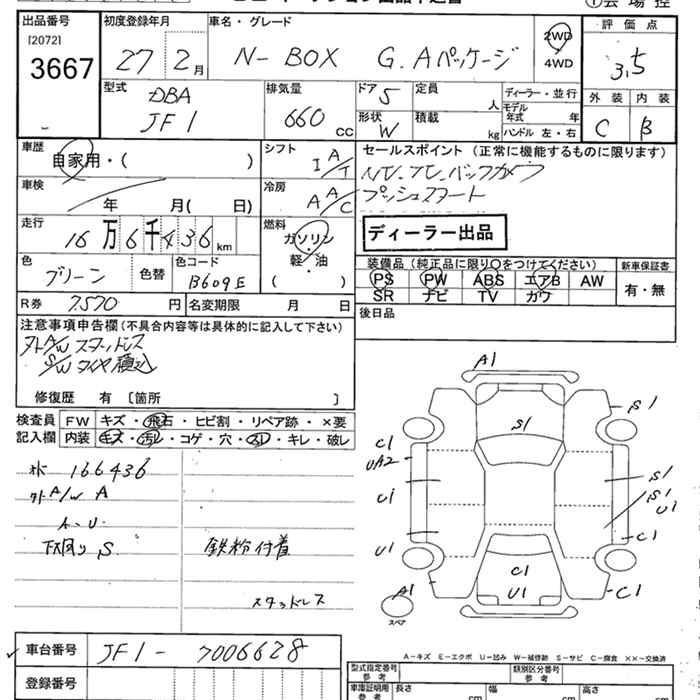 ①会場控
出品番号 初度登録年月 車名・グレード 評価点
[2072]
3667
27年 2月 N-BOX G.Aパッケージ
2WD
4WD
3,5
外装 内装
C B
型式 DBA
JF1
排気量 660 CC
ドア 5 定員 人
形状 W 積載 kg
ディーラー・並行
モデル年式 年
ハンドル 左・右
車歴 自家用・( )
シフト I A/T
セールスポイント(正常に機能するものに限ります)
バックカメラ
プッシュスタート
車検 年 月( 日)
冷房 A A/C
走行 16万6千436km
燃料 ガソリン・軽・油
( )
ディーラー出品
色 グリーン 色替 色コード B609E
装備品(純正品に限り○をつけてください) 新車保証書
PS PW ABS エアB AW
SR ナビ TV カワ
有・無
R券 7570円 名変期限 月 日
後日品
注意事項申告欄(不具合内容等は具体的に記入して下さい)
外A/W スタッドレス
S/W タイヤ積込
修復歴 有 [箇所 ]
検査員記入欄
FW キズ・飛石・ヒビ割・リペア跡・×要
内装 キズ・汚レ・コゲ・穴・スレ・キレ・破レ
166436
外A/W A
下回り S 鉄粉付着
スタッドレス
A1
S1
S1
C1
UA2
U1
U1
S1
S1
U1
C1
C1
U1
A1
C1
スペア
A-キズ E-エクボ U-凹み W-補修跡 S-サビ C-腐食 ××-交換済
車台番号 JF1-7006628
登録番号
型式指定番号 参考 類別区分番号 参考
車庫証明用 参考 長さ cm 幅 cm 高さ cm